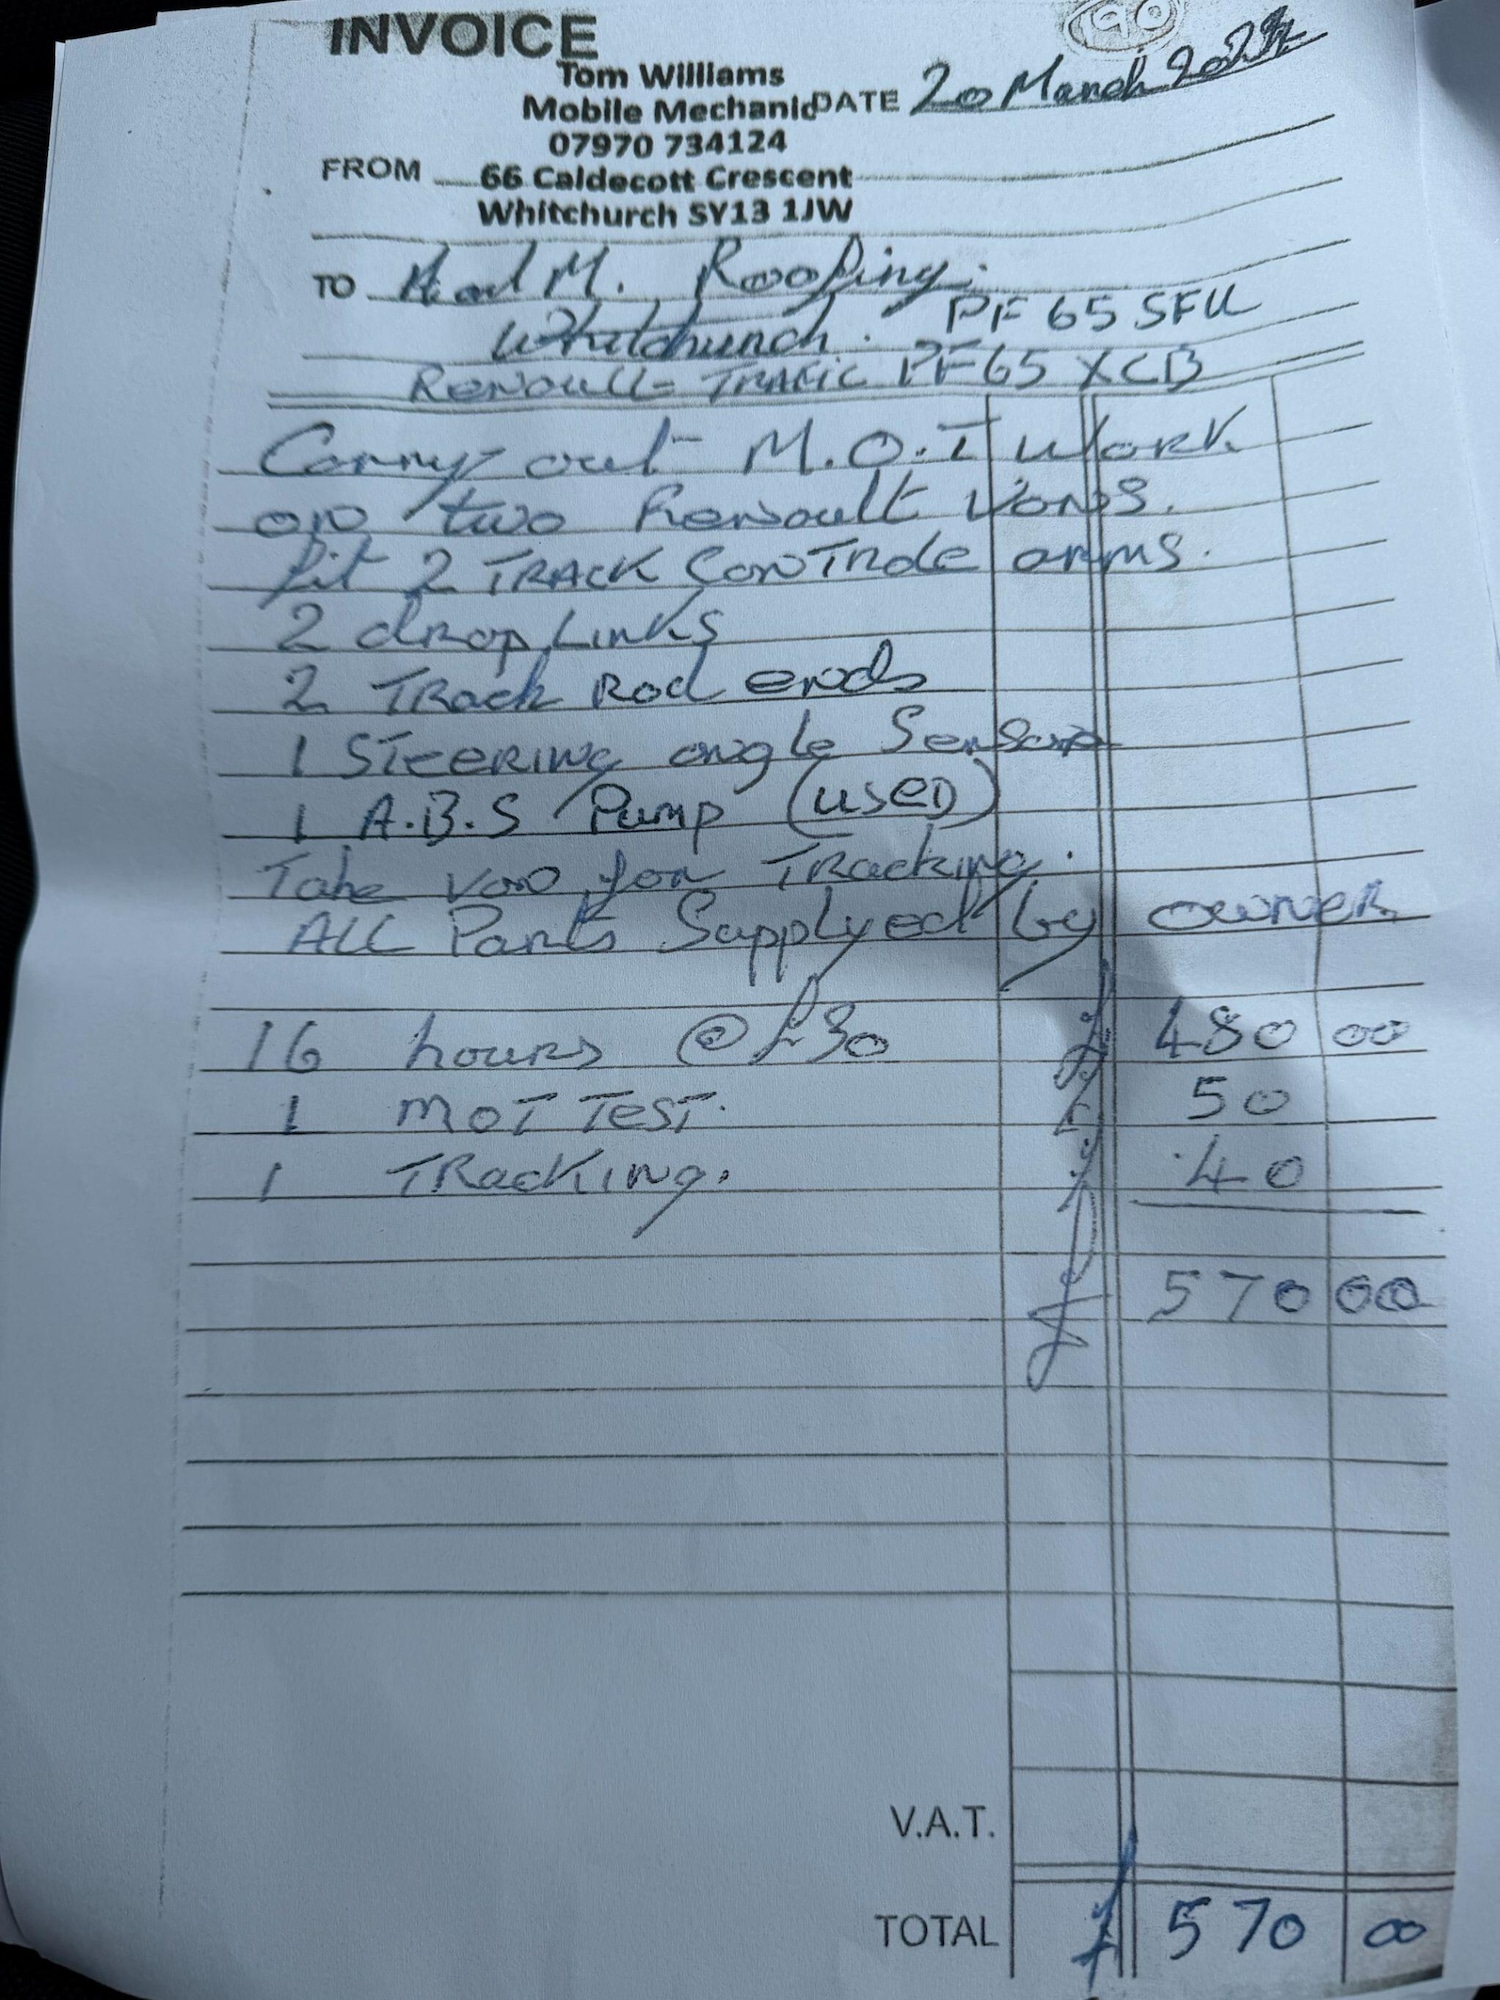 INVOICE
190
Tom Williams
Mobile Mechanic
DATE 20 March 2024
07970 734124
FROM 66 Caldecott Crescent
Whitchurch SY13 1JW
TO H and M. Roofing.
Whitchurch. PF 65 SFU
RENAULT TRAFIC PF65 XCB
Carry out M.O.T work
on two Renault Vans.
fit 2 TRACK CONTROLE arms.
2 drop Links
2 TRack Rod ends
1 STEERING angle Sensor
1 A.B.S Pump (USED)
Take van for TRacking.
ALL Parts Supplyed by owner
16 hours @ £30 £ 480 00
1 MOT TEST. £ 50
1 TRacKING. £ 40
£ 570 00
V.A.T.
TOTAL £ 570 00